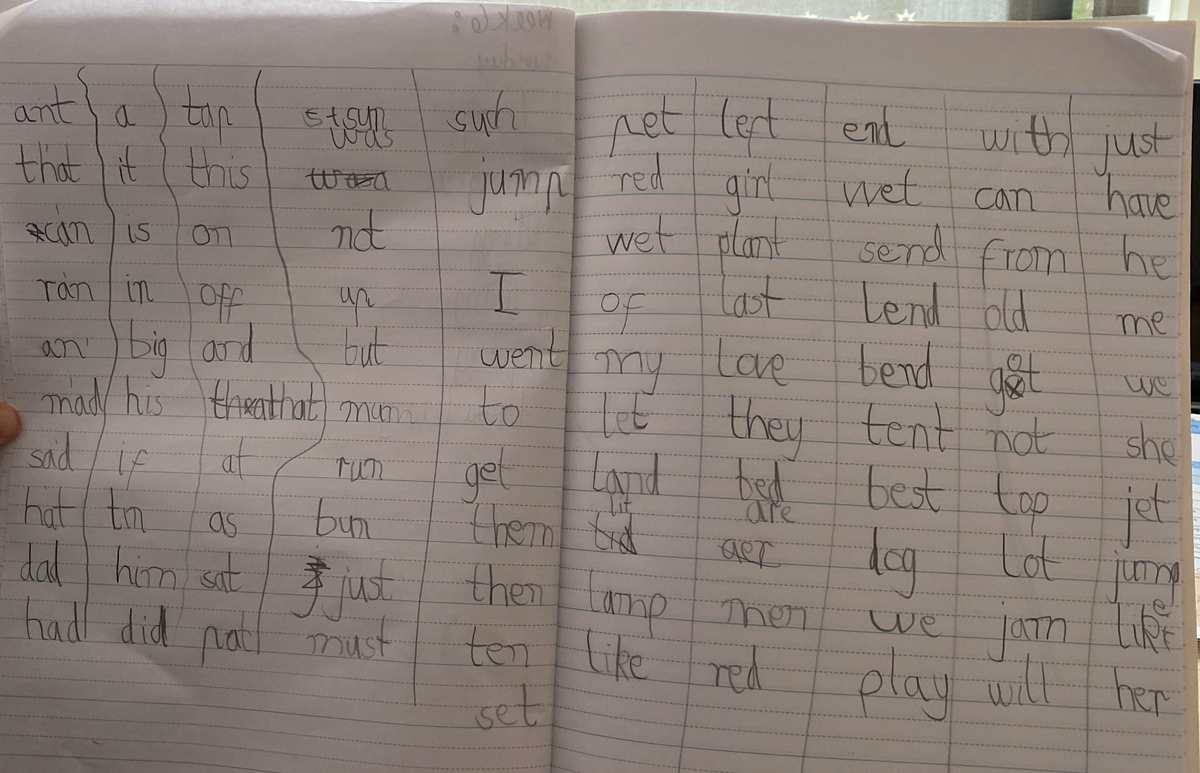 ant a tap such
that it this was jump
can is on not
ran in off up I
an big and but went
mad his that mum to
sad if at run get
hat tin as bun them
dad him sat just then
had did pat must ten
set
pet left end with just
red girl wet can have
wet plant send from he
of last lend old me
my love bend got we
let they tent not she
land bed best top jet
lit are
aer dog lot jump
lamp men we jam like
like red play will her